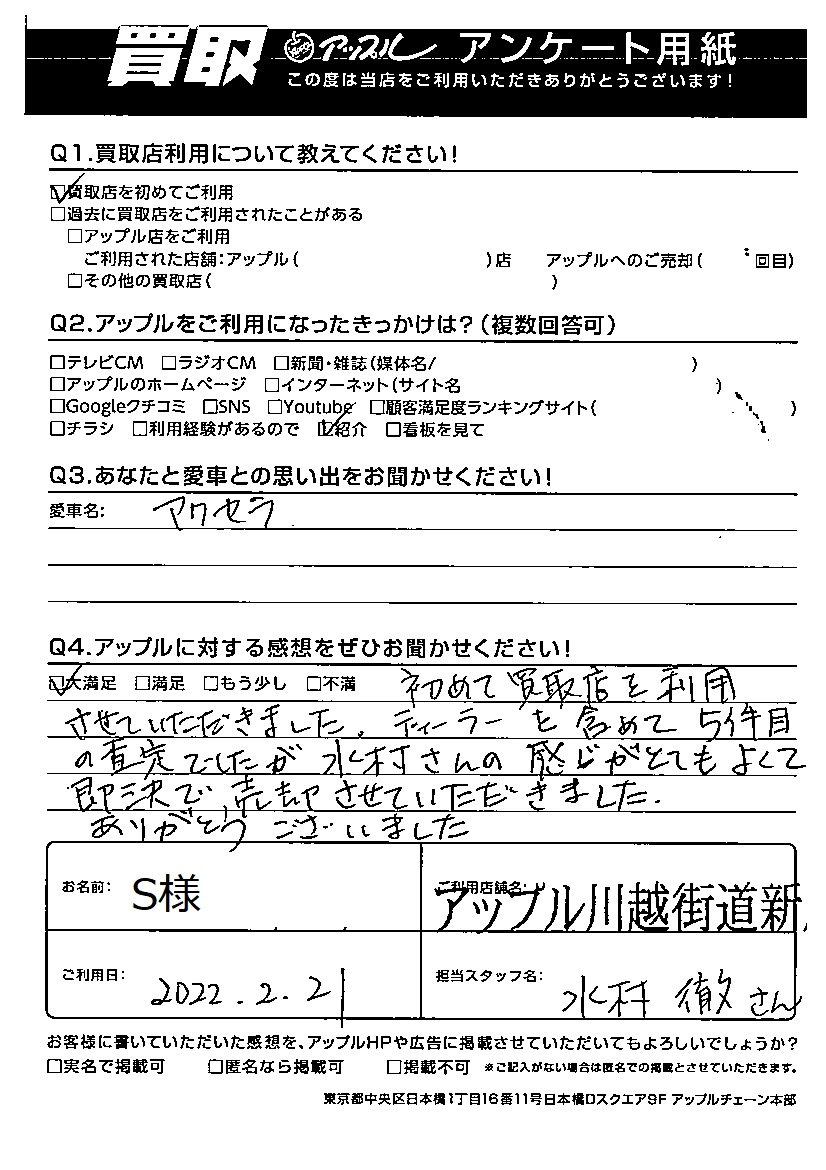 買取 アップル アンケート用紙
この度は当店をご利用いただきありがとうございます!
Q1.買取店利用について教えてください!
☑買取店を初めてご利用
□過去に買取店をご利用されたことがある
□アップル店をご利用
ご利用された店舗:アップル( )店 アップルへのご売却( 回目)
□その他の買取店( )
Q2.アップルをご利用になったきっかけは?(複数回答可)
□テレビCM □ラジオCM □新聞・雑誌(媒体名/ )
□アップルのホームページ □インターネット(サイト名 )
□Googleクチコミ □SNS □Youtube □顧客満足度ランキングサイト( )
□チラシ □利用経験があるので ☑紹介 □看板を見て
Q3.あなたと愛車との思い出をお聞かせください!
愛車名: アクセラ
Q4.アップルに対する感想をぜひお聞かせください!
☑大満足 □満足 □もう少し □不満 初めて買取店を利用
させていただきました。ディーラーを含めて5件目
の査定でしたが水村さんの感じがとてもよくて
即決で、売却させていただきました.
ありがとうございました
お名前: S様 ご利用店舗名: アップル川越街道新
ご利用日: 2022.2.21 担当スタッフ名: 水村 徹さん
お客様に書いていただいた感想を、アップルHPや広告に掲載させていただいてもよろしいでしょうか?
□実名で掲載可 □匿名なら掲載可 □掲載不可 ※ご記入がない場合は匿名での掲載とさせていただきます。
東京都中央区日本橋1丁目16番11号日本橋Dスクエア9F アップルチェーン本部